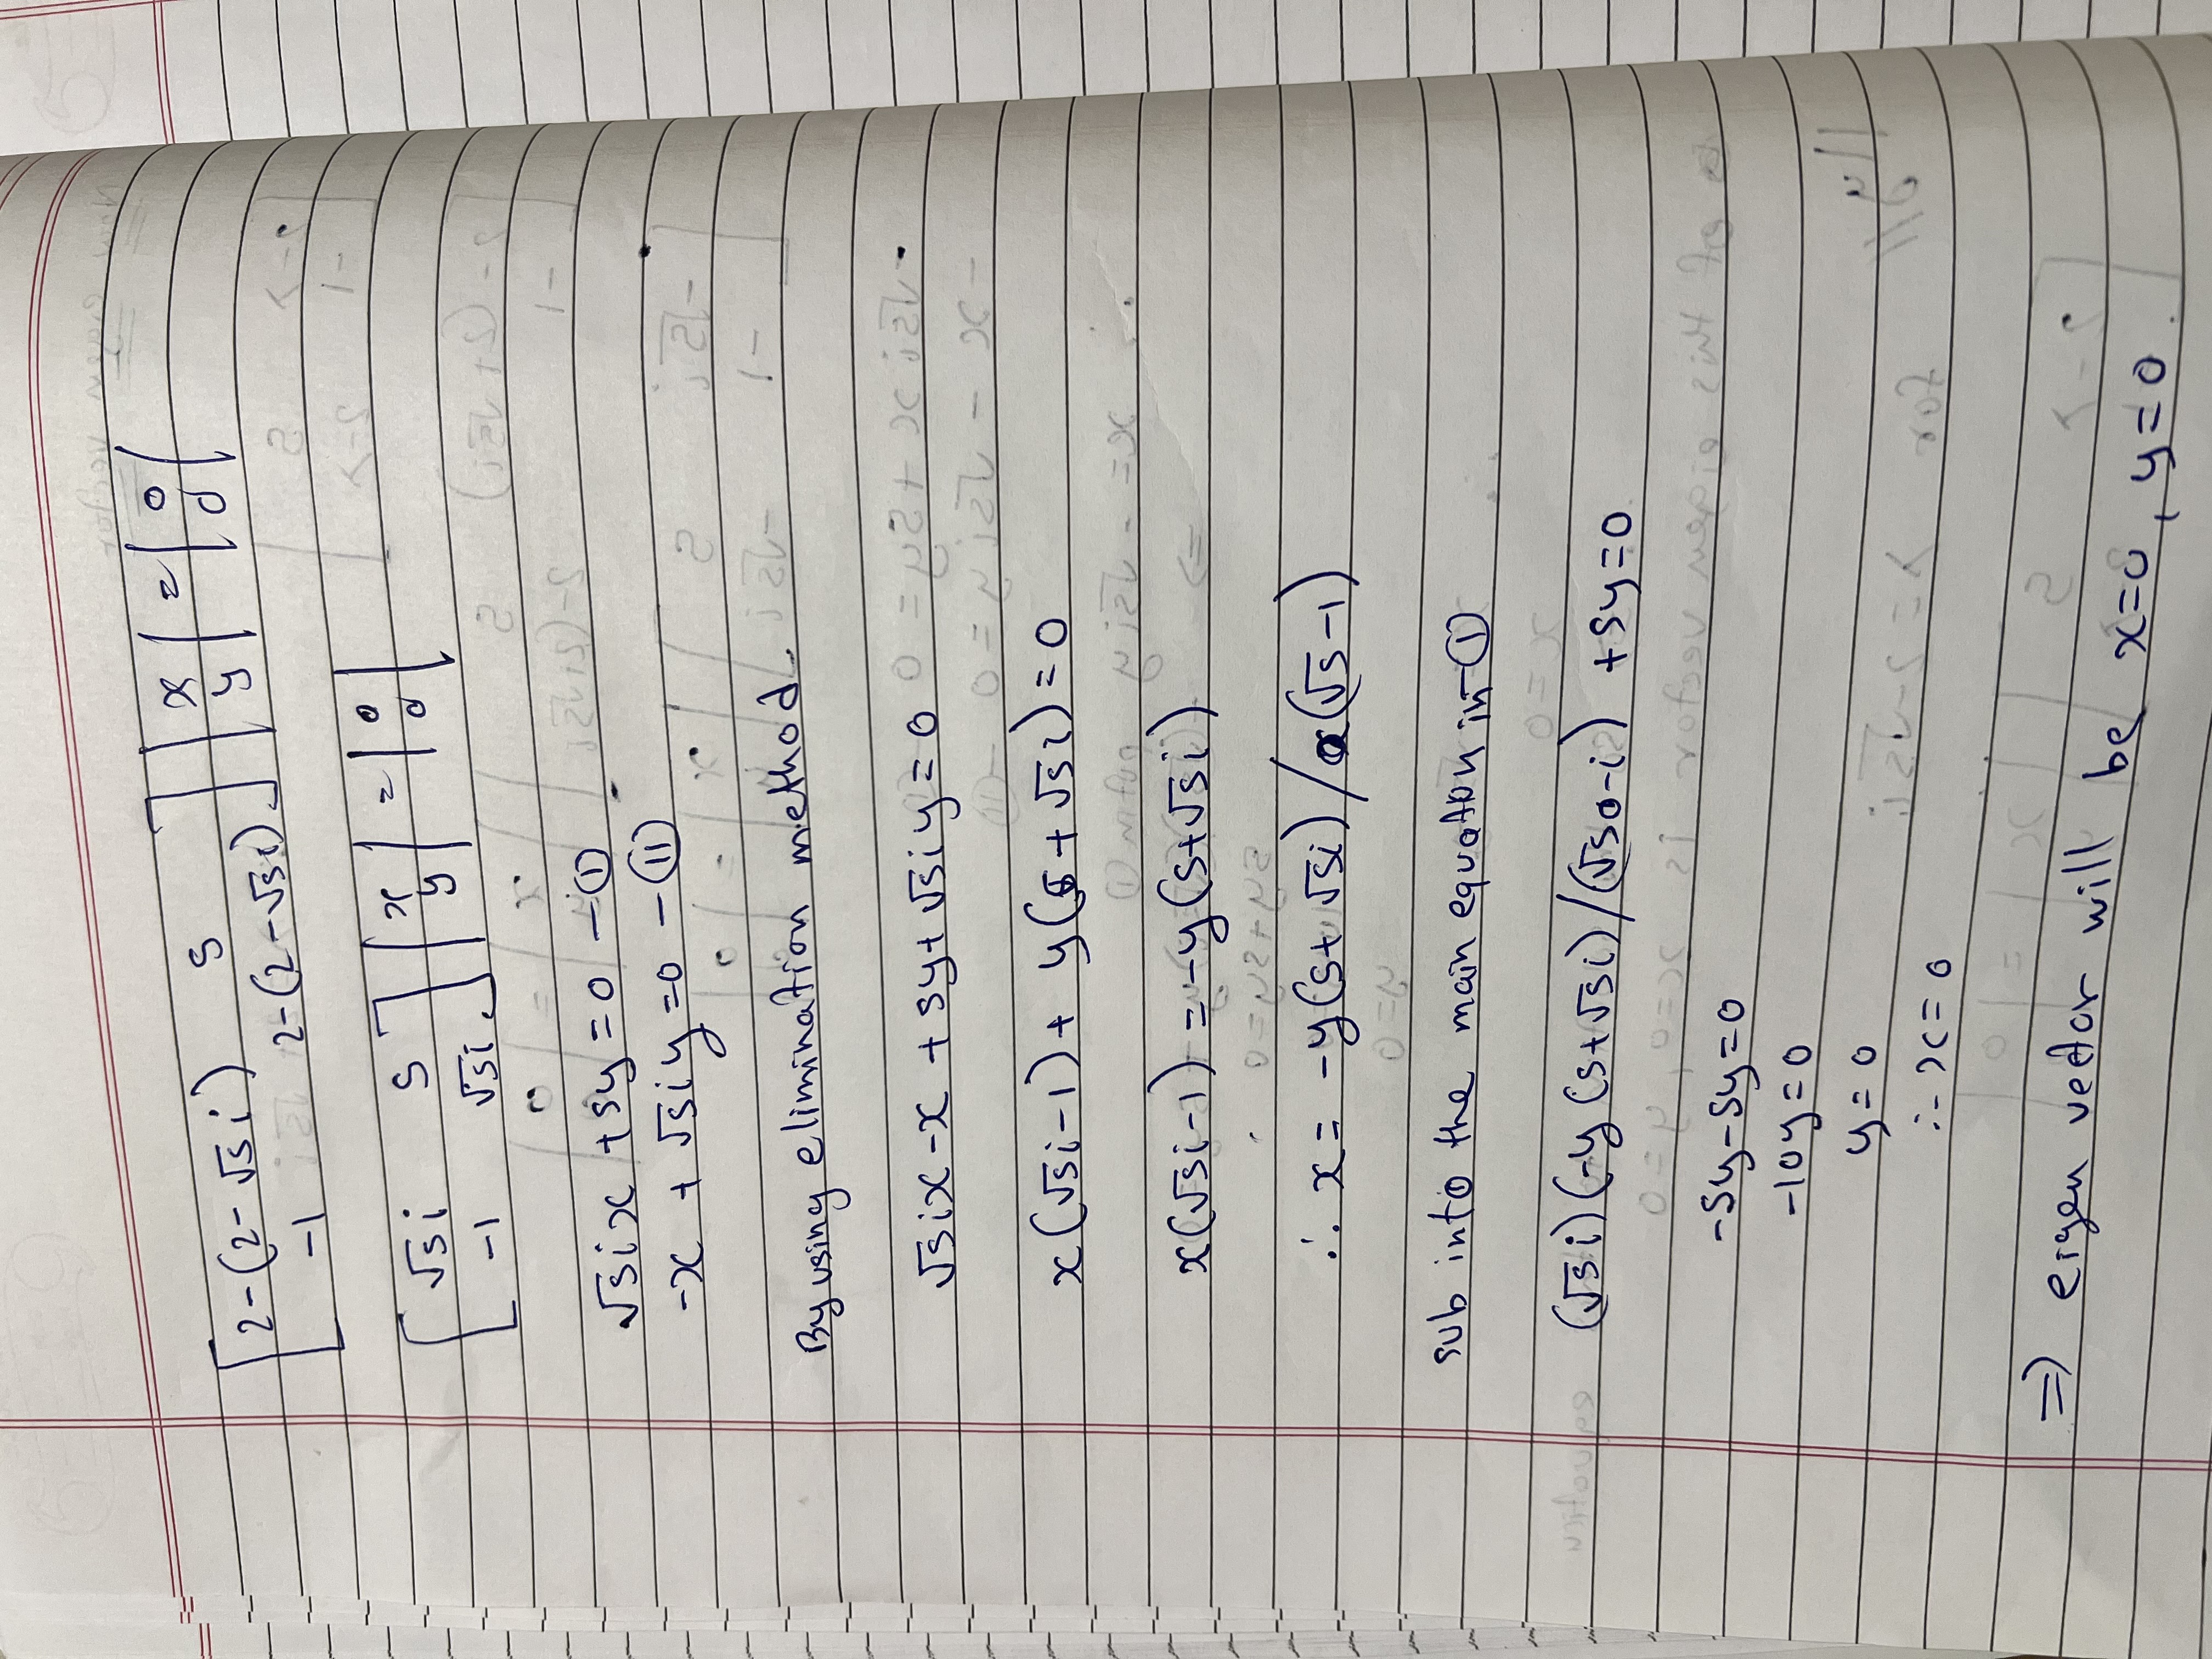 [ 2-(2-√5i)   5 ] | x | = | 0 |
[ -1   2-(2-√5i) ] | y |   | 0 |
[ √5i   5 ] | x | = | 0 |
[ -1   √5i ] | y |   | 0 |
√5ix + 5y = 0 — (I)
-x + √5iy = 0 — (II)
By using elimination method.
√5ix - x + 5y + √5iy = 0
x(√5i-1) + y(5+√5i) = 0
x(√5i-1) = -y(5+√5i)
∴ x = -y(5+√5i)/(√5-1)
sub into the main equation in (I)
(√5i)(-y(5+√5i)/(√5-i) + 5y = 0
-5y-5y=0
-10y=0
y=0
∴ x=0
⇒ eigen vector will be x=0, y=0.